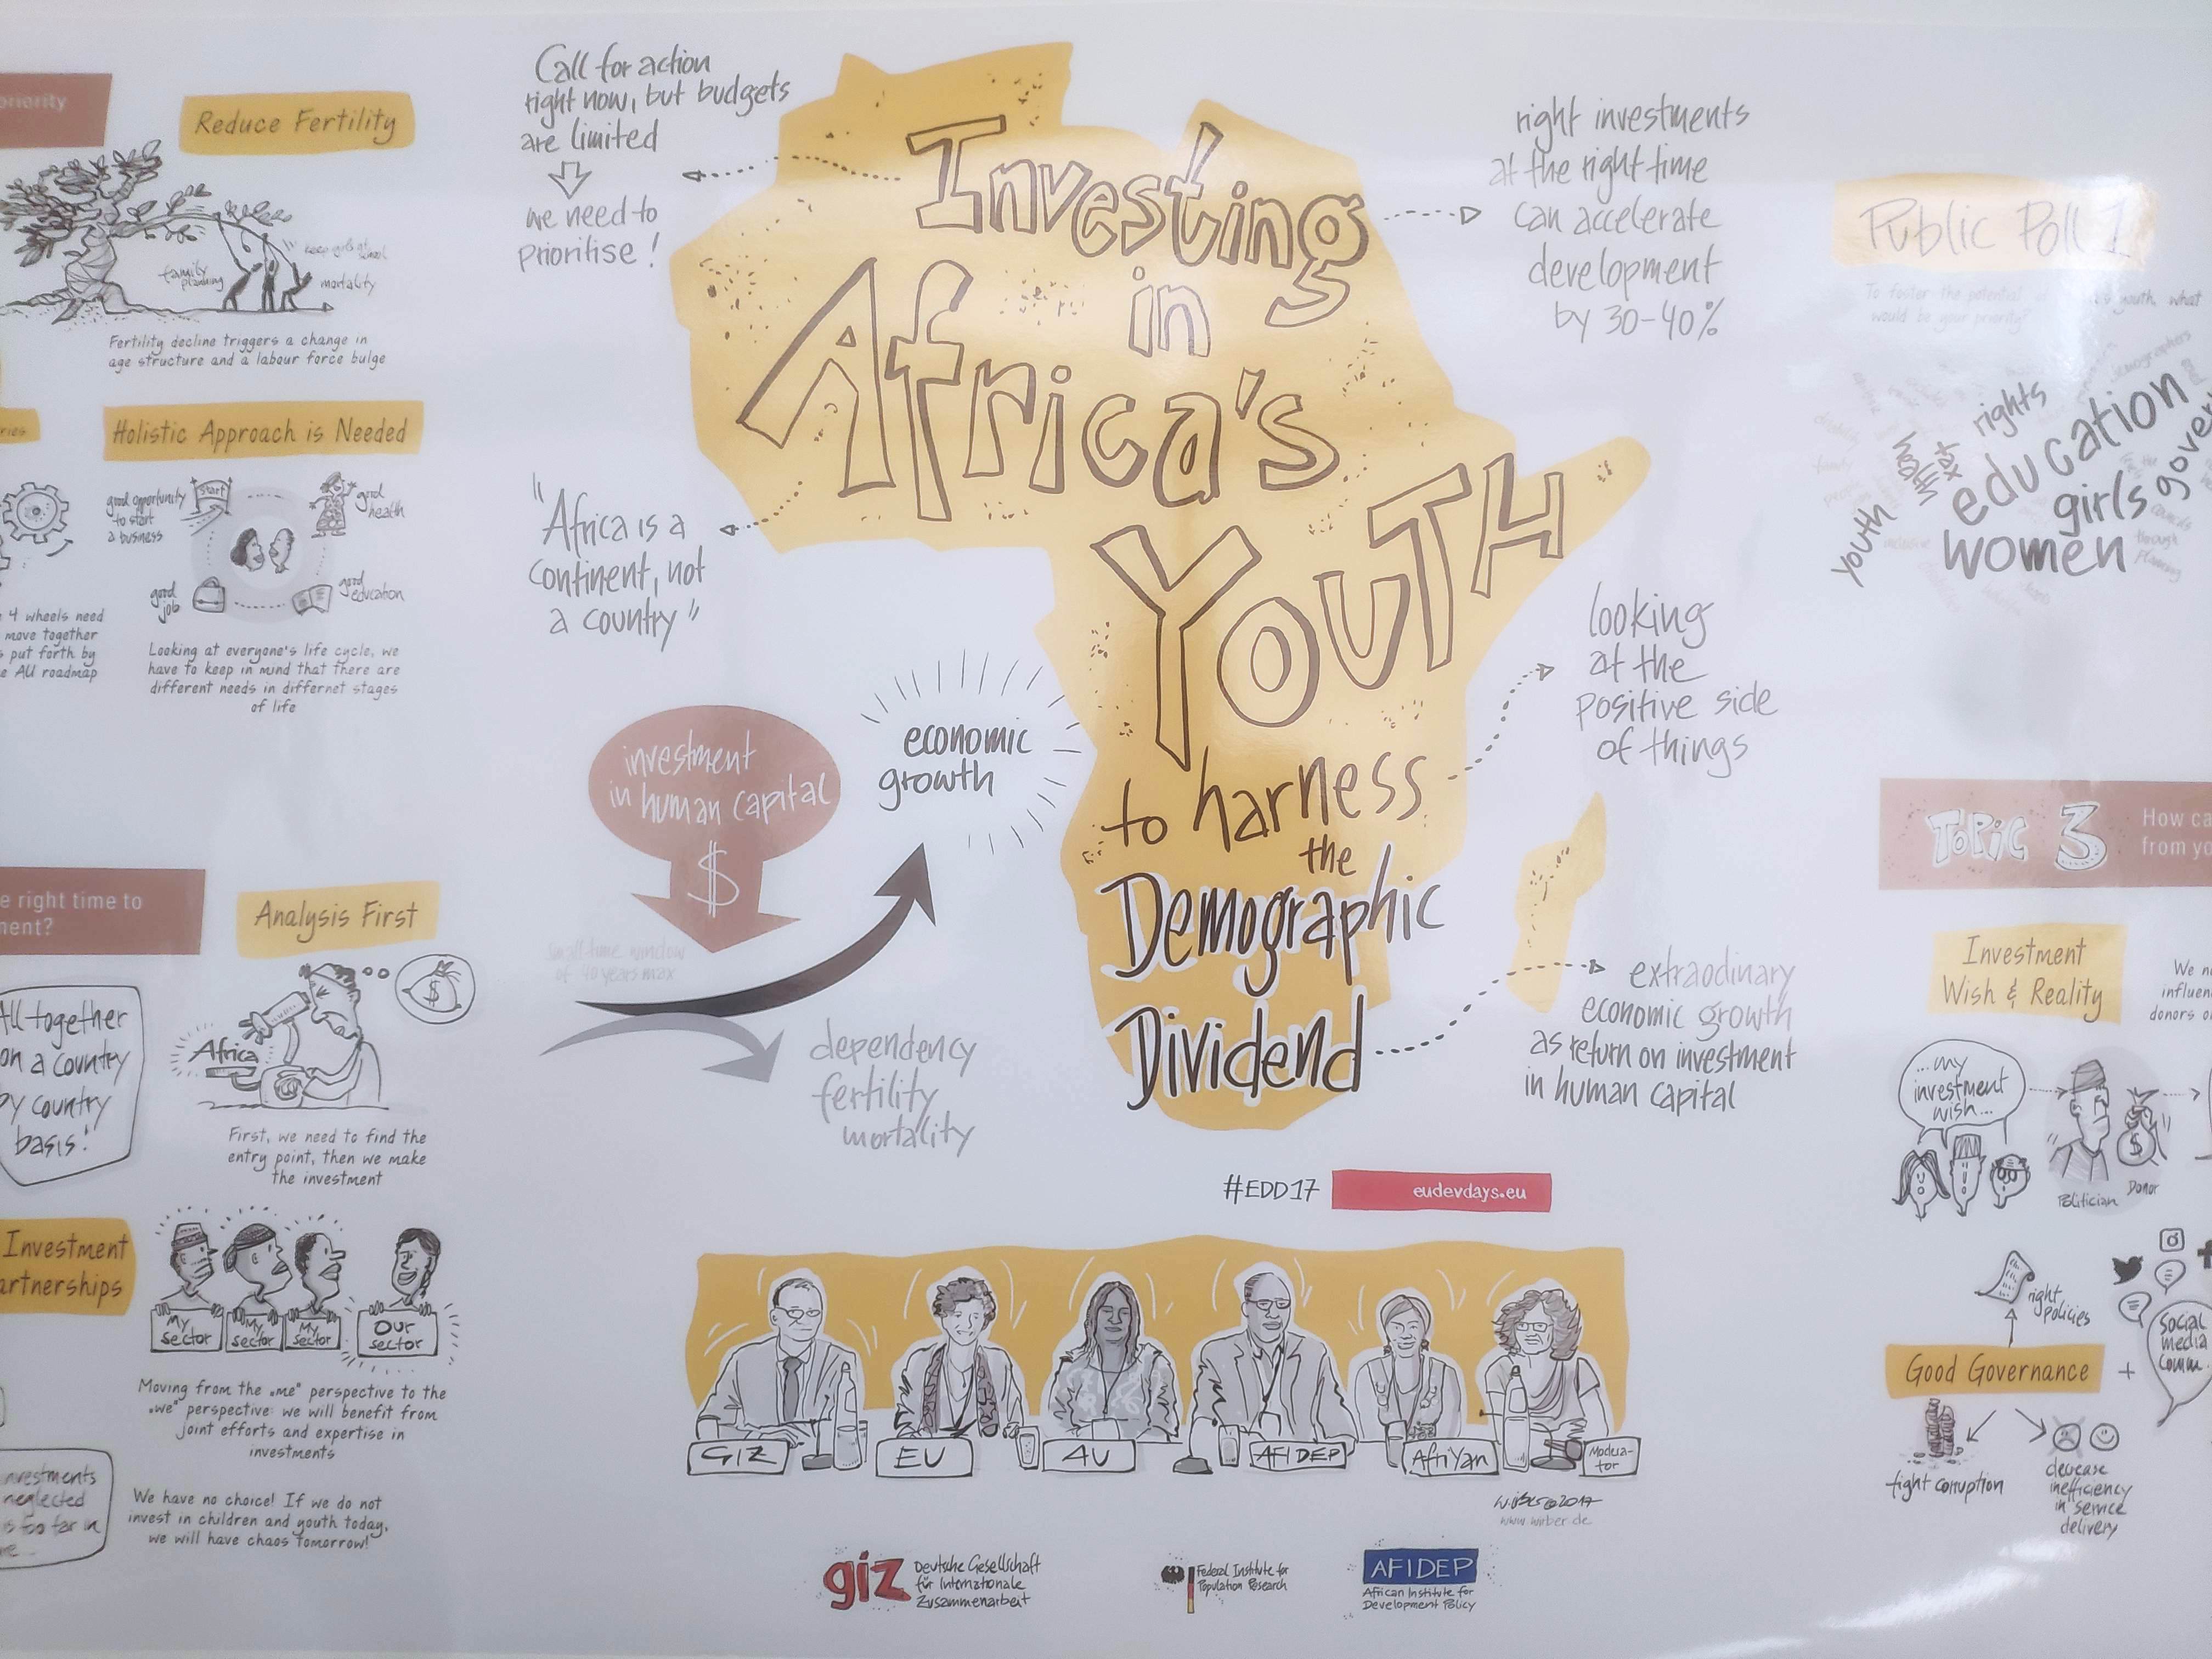 priority
Reduce Fertility
family
planning
keep girls at
school
mortality
Fertility decline triggers a change in
age structure and a labour force bulge
ries
Holistic Approach is Needed
good opportunity
to start
a business
start
good
health
good
job
good
education
4 wheels need
move together
put forth by
AU roadmap
Looking at everyone's life cycle, we
have to keep in mind that there are
different needs in differnet stages
of life
e right time to
ment?
Analysis First
All together
on a country
by country
basis!
Africa
$
First, we need to find the
entry point, then we make
the investment
Investment
artnerships
My
sector
My
sector
My
sector
Our
sector
Moving from the „me" perspective to the
„we" perspective: we will benefit from
joint efforts and expertise in
investments
nvestments
neglected
is too far in
We have no choice! If we do not
invest in children and youth today,
we will have chaos tomorrow!
Call for action
right now, but budgets
are limited
we need to
prioritise!
"Africa is a
continent, not
a country"
Investing
in
Africa's
YOUTH
to harness
the
Demographic
Dividend
right investments
at the right time
can accelerate
development
by 30-40%
looking
at the
positive side
of things
extraodinary
economic growth
as return on investment
in human capital
investment
in human capital
$
economic
growth
small time window
of 40 years max
dependency
fertility
mortality
#EDD17
eudevdays.eu
GIZ
EU
AU
AFIDEP
AfriYan
Modera-
tor
©2017
www.wirber.de
giz
Deutsche Gesellschaft
für Internationale
Zusammenarbeit
Federal Institute for
Population Research
AFIDEP
African Institute for
Development Policy
Public Poll 1
To foster the potential
youth, what
would be your priority?
demographers
rights
education
health
tax
girls
govern
youth
women
through
planning
TOPIC 3
How ca
from yo
Investment
Wish & Reality
We n
influen
donors o
...my
investment
wish...
$
Politician
Donor
right
policies
Social
media
Comm.
Good Governance
+
fight corruption
decrease
inefficiency
in service
delivery